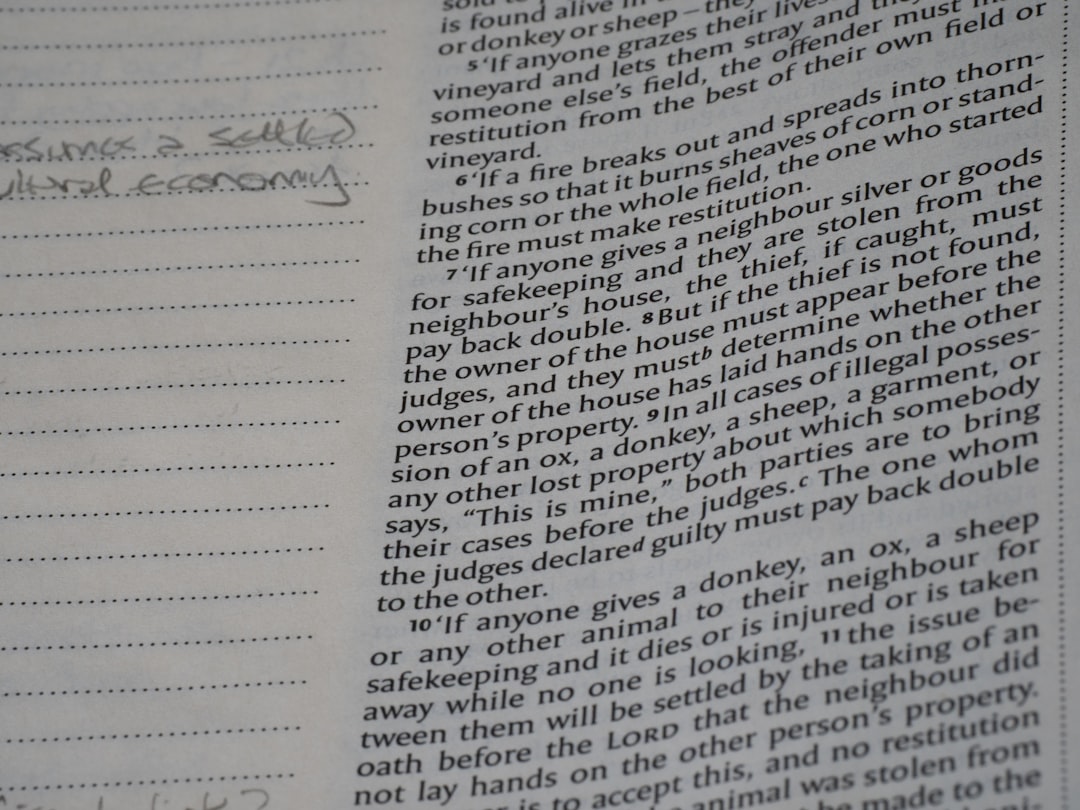 assumes a settled
ultural economy
is found alive in
or donkey or sheep – they
5 ‘If anyone grazes their lives
vineyard and lets them stray and they
someone else’s field, the offender must m
restitution from the best of their own field or
vineyard.
6 ‘If a fire breaks out and spreads into thorn-
bushes so that it burns sheaves of corn or stand-
ing corn or the whole field, the one who started
the fire must make restitution.
7 ‘If anyone gives a neighbour silver or goods
for safekeeping and they are stolen from the
neighbour’s house, the thief, if caught, must
pay back double. 8 But if the thief is not found,
the owner of the house must appear before the
judges, and they must b determine whether the
owner of the house has laid hands on the other
person’s property. 9 In all cases of illegal posses-
sion of an ox, a donkey, a sheep, a garment, or
any other lost property about which somebody
says, “This is mine,” both parties are to bring
their cases before the judges. c The one whom
the judges declared d guilty must pay back double
to the other.
10 ‘If anyone gives a donkey, an ox, a sheep
or any other animal to their neighbour for
safekeeping and it dies or is injured or is taken
away while no one is looking, 11 the issue be-
tween them will be settled by the taking of an
oath before the LORD that the neighbour did
not lay hands on the other person’s property.
is to accept this, and no restitution
animal was stolen from
be made to the